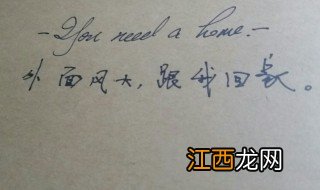 -You need a home.-
外面风大，跟我回家。
江西龙网